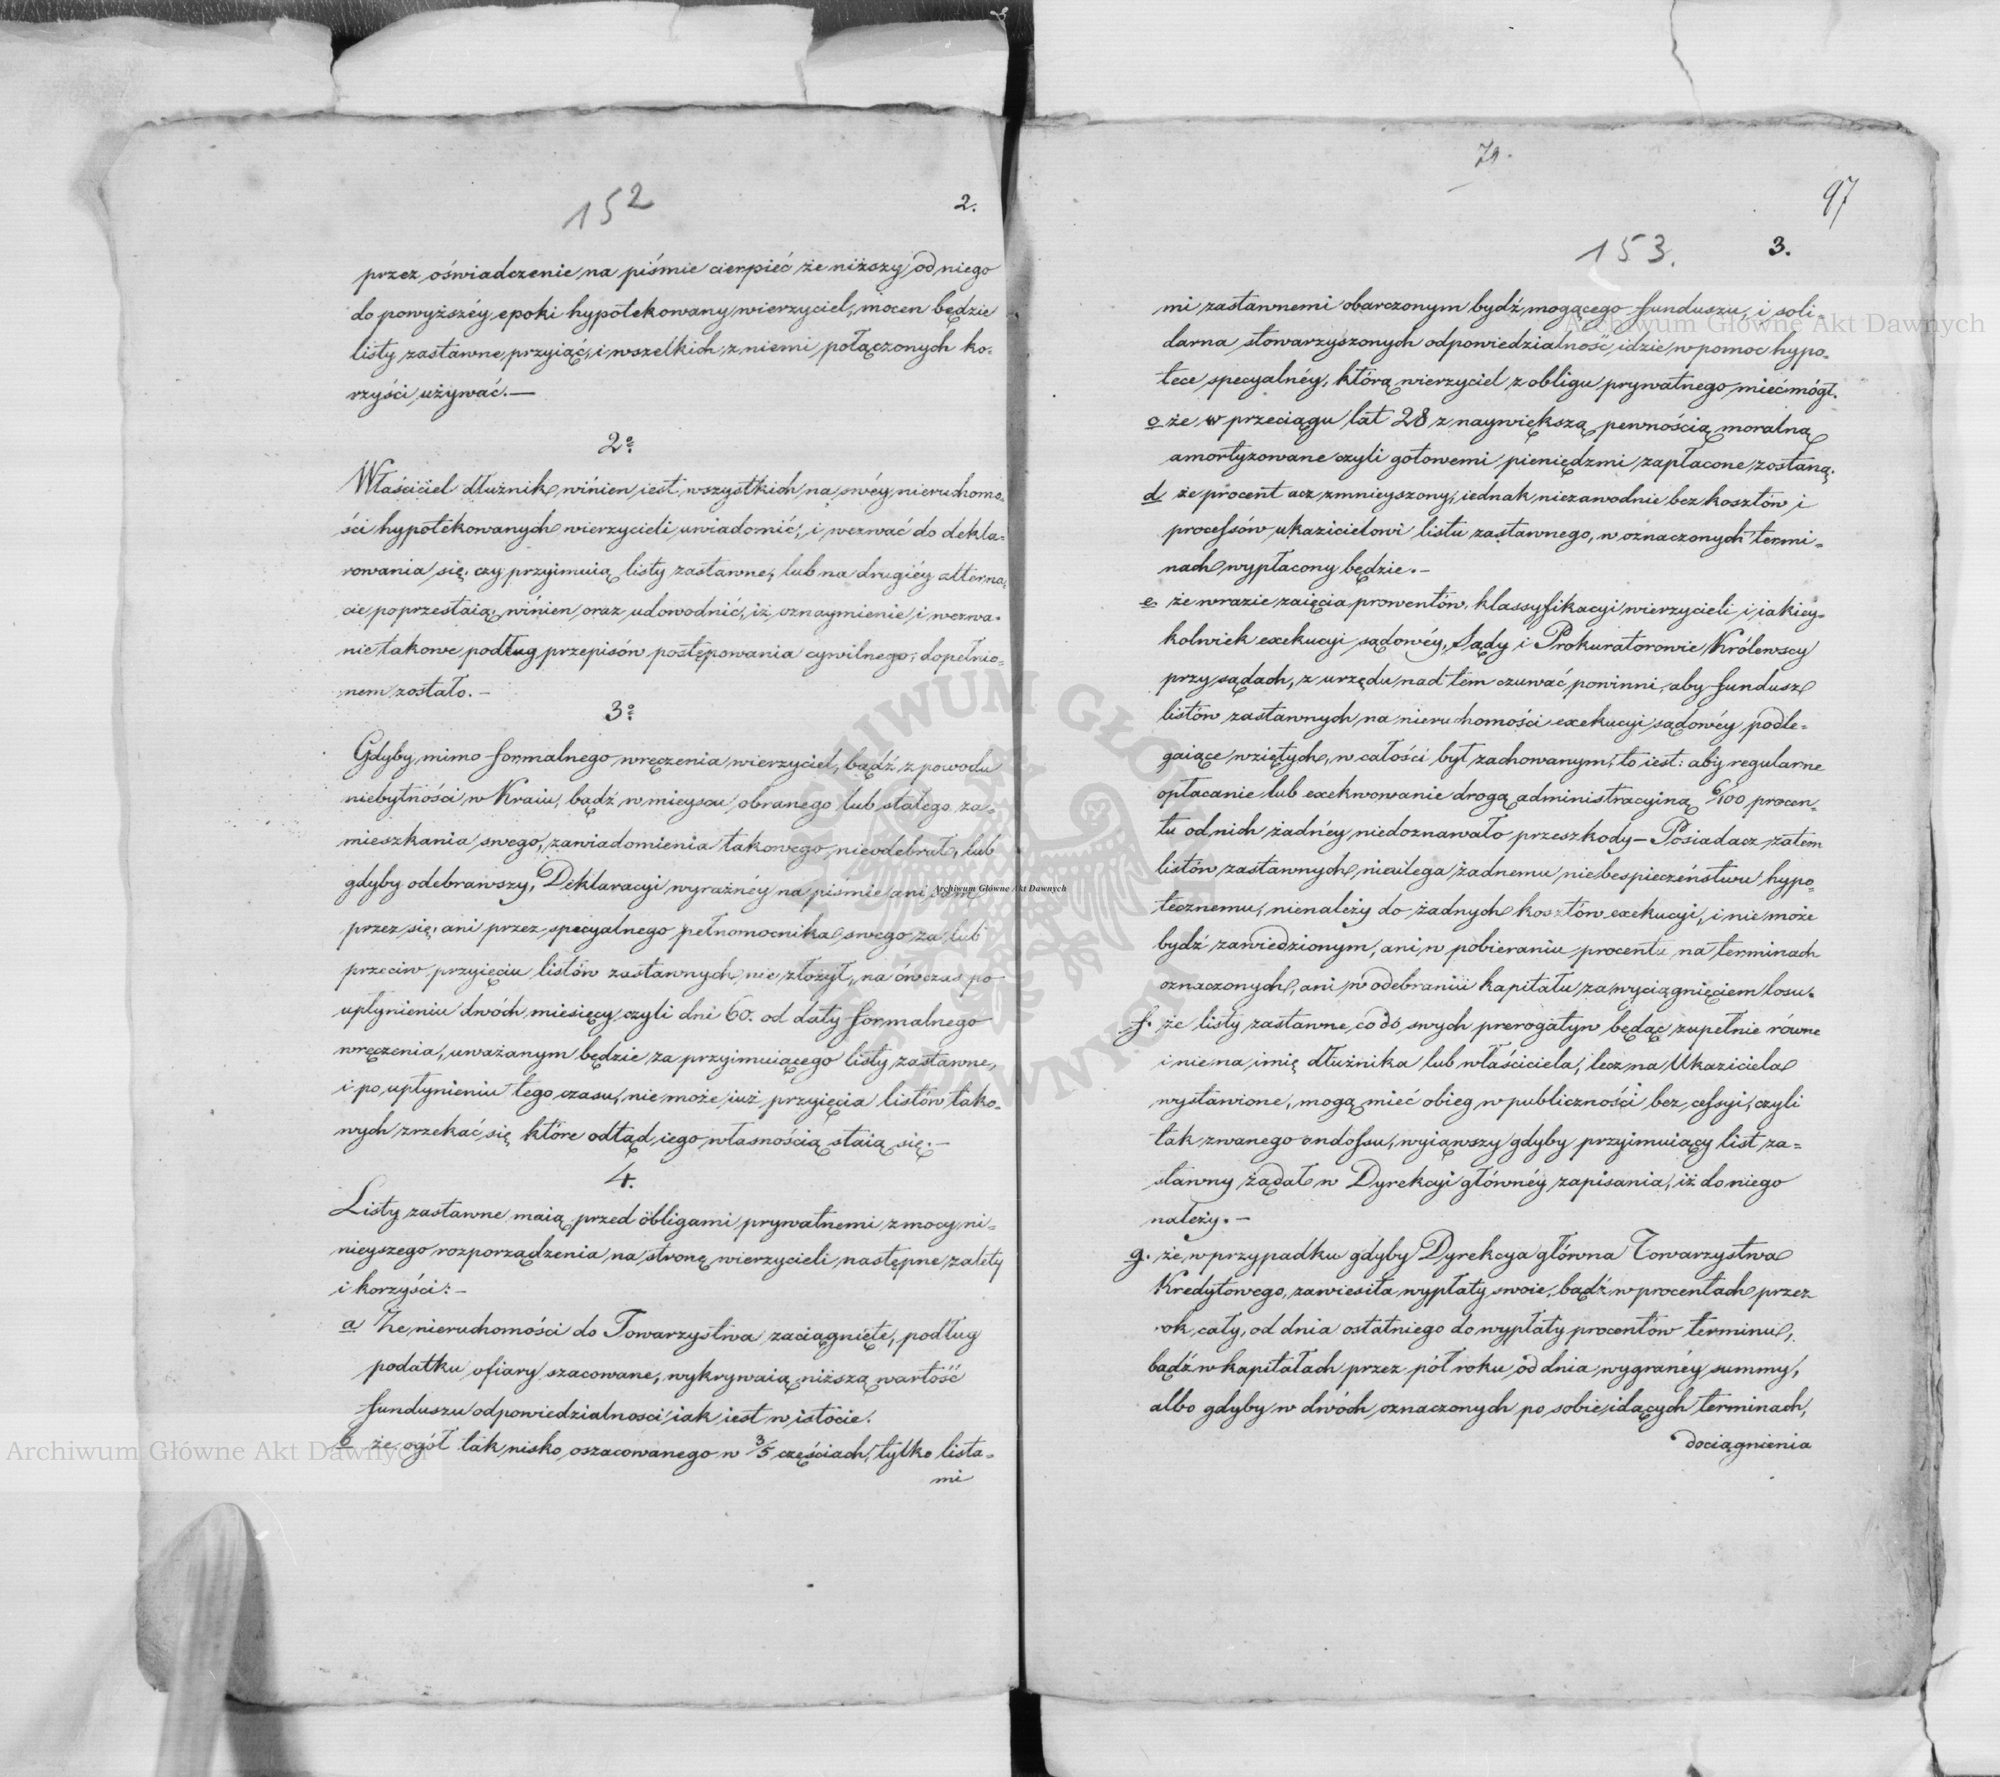 152
2.
przez oświadczenie na piśmie cierpieć że niższy od niego
do powyższéy epoki hypotekowany wierzyciel, mocen będzie
listy zastawne przyiąć, i wszelkich z niemi połączonych ko-
rzyści używać.—
2º
Właściciel dłużnik winien iest wszystkich na swéy nieruchomo-
ści hypotekowanych wierzycieli uwiadomić, i wezwać do dekla-
rowania się, czy przyimuią listy zastawne, lub na drugiéy alterna-
cie poprzestaią; winien oraz udowodnić, iż oznaymienie i wezwa-
nie takowe podług przepisów postępowania cywilnego, dopełnio-
nem zostało.—
3º
Gdyby mimo formalnego wręczenia wierzyciel, bądź z powodu
niebytności w Kraiu, bądź w mieyscu obranego lub stałego za-
mieszkania swego, zawiadomienia takowego nieodebrał, lub
gdyby odebrawszy, Deklaracyi wyraźnéy na piśmie ani sam
przez się, ani przez specyalnego pełnomocnika swego za lub
przeciw przyięciu listów zastawnych nie złożył, na ówczas po
upłynieniu dwóch miesięcy czyli dni 60. od daty formalnego
wręczenia, uważanym będzie za przyimuiącego listy zastawne,
i po upłynieniu tego czasu, nie może iuż przyięcia listów tako-
wych zrzekać się które odtąd iego własnością staią się.—
4.
Listy zastawne maią przed obligami prywatnemi z mocy ni-
nieyszego rozporządzenia na stronę wierzycieli następne zalety
i korzyści:—
a Że nieruchomości do Towarzystwa zaciągnięte, podług
podatku ofiary szacowane, wykrywaią niższą wartość
funduszu odpowiedzialnosci iak iest w istocie.
b że ogół tak nisko oszacowanego w 3/5 częściach tylko lista-
mi
79.
97
153.
3.
mi zastawnemi obarczonym bydź mogącego funduszu, i soli-
darna stowarzyszonych odpowiedzialność idzie w pomoc hypo-
tece specyalnéy, którą wierzyciel z obligu prywatnego mieć mógł.
c że w przeciągu lat 28 z naywiększą pewnością moralną
amortyzowane czyli gotowemi pieniędzmi zapłacone zostaną.
d że procent acz zmnieyszony, iednak niezawodnie bez kosztów i
processów ukazicielowi listu zastawnego, w oznaczonych termi-
nach wypłacony będzie.—
e że wrazie zaięcia prowentów, klassyfikacyi wierzycieli i iakiey-
kolwiek exekucyi sądowéy, Sądy i Prokuratorowie Królewscy
przy sądach, z urzędu nad tem czuwać powinni, aby fundusz
listów zastawnych na nieruchomości exekucyi sądowéy podle-
gaiące wziętych, w całości był zachowanym, to iest: aby regularne
opłacanie lub exekwowanie drogą administracyiną 6/100 procen-
tu od nich żadnéy niedoznawało przeszkody— Posiadacz zatem
listów zastawnych, nieulega żadnemu niebespieczeństwu hypo-
tecznemu, nienależy do żadnych kosztów exekucyi, i nie może
bydź zawiedzionym, ani w pobieraniu procentu na terminach
oznaczonych, ani w odebraniu kapitału za wyciągnięciem losu.
f. że listy zastawne co do swych prerogatyw będąc zupełnie równe
i nie na imię dłużnika lub właściciela, lecz na Ukaziciela
wystawione, mogą mieć obieg w publiczności bez cessyi, czyli
tak zwanego endossu, wyiąwszy gdyby przyimuiący list za-
stawny żądał w Dyrekcyi głównéy zapisania, iż do niego
należy.—
g. że w przypadku gdyby Dyrekcya główna Towarzystwa
Kredytowego, zawiesiła wypłaty swoie, bądź w procentach przez
rok cały, od dnia ostatniego do wypłaty procentów terminu,
bądź w kapitałach przez pół roku od dnia wygranéy summy,
albo gdyby w dwóch oznaczonych po sobie idących terminach,
dociągnienia
Archiwum Główne Akt Dawnych
Archiwum Główne Akt Dawnych
Archiwum Główne Akt Dawnych